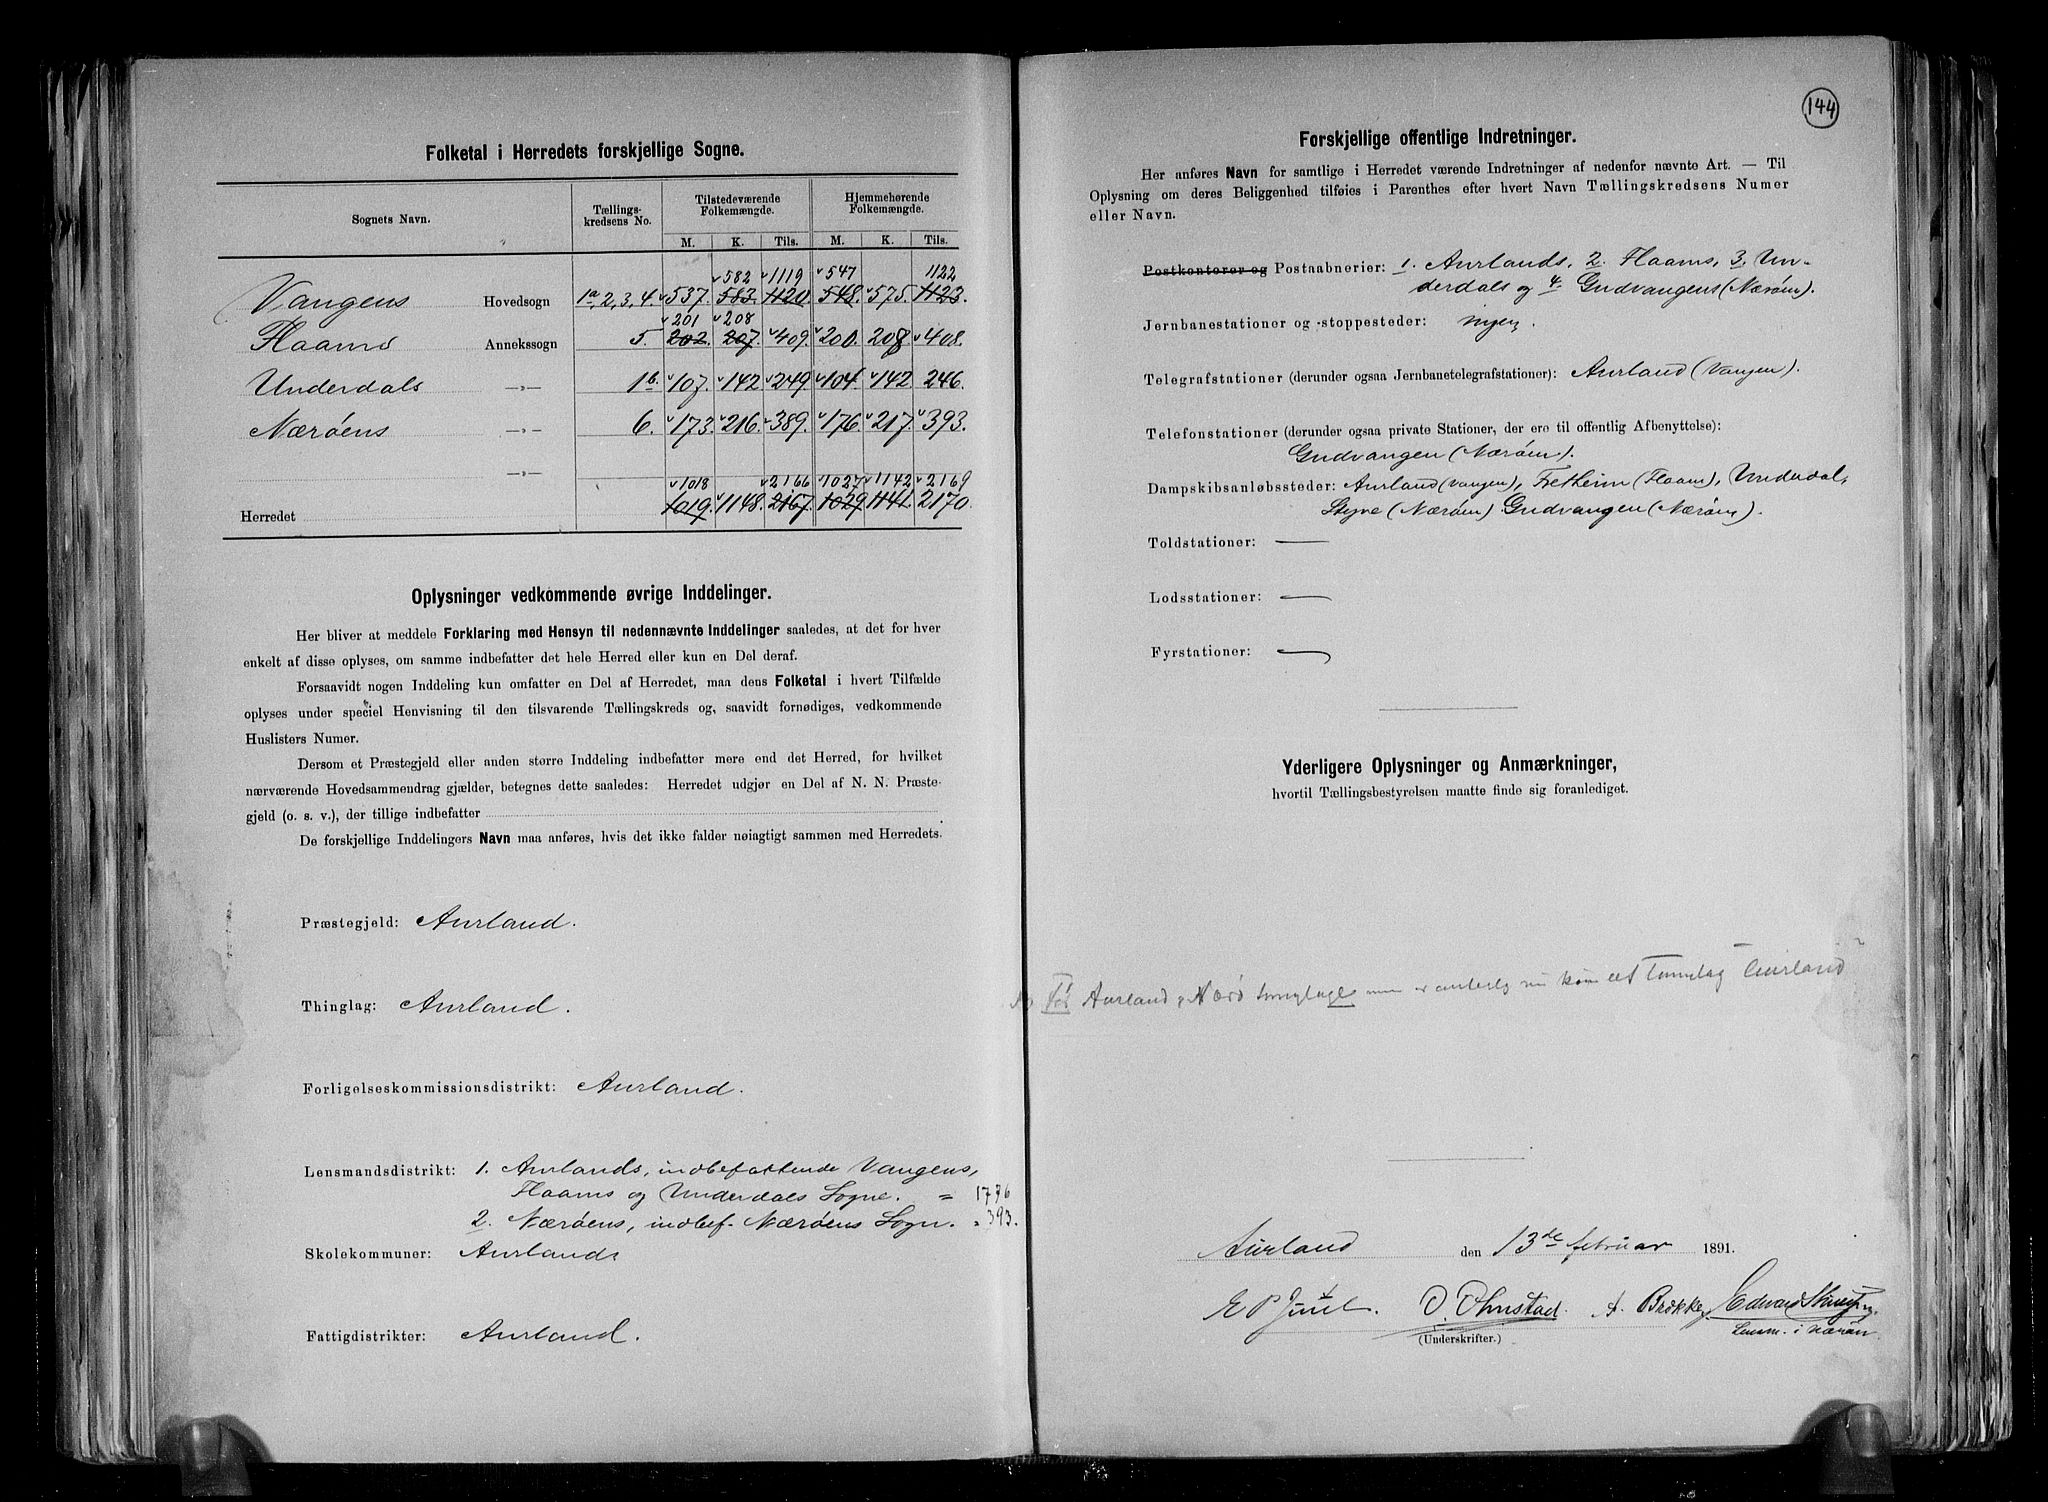 Folketal i Herredets forskjellige Sogne.
Sognets Navn. Tællings-kredsens No. Tilstedeværende Folkemængde. Hjemmehørende Folkemængde.
M. K. Tils. M. K. Tils.
582 1119 547 1122
Vangens Hovedsogn 1a, 2, 3, 4. 537. 583. 1120 548. 575. 1123.
201 208
Flaams Annekssogn 5. 202. 207. 409. 200. 208. 408.
Underdals —„— 1b. 107. 142. 249. 104. 142 246.
Nærøens —„— 6. 173. 216. 389. 176. 217. 393.
—„—
1018 2166 1027 1142 2169
Herredet 1019. 1148. 2167. 1029 1141. 2170.
Oplysninger vedkommende øvrige Inddelinger.
Her bliver at meddele Forklaring med Hensyn til nedennævnte Inddelinger saaledes, at det for hver
enkelt af disse oplyses, om samme indbefatter det hele Herred eller kun en Del deraf.
Forsaavidt nogen Inddeling kun omfatter en Del af Herredet, maa dens Folketal i hvert Tilfælde
oplyses under speciel Henvisning til den tilsvarende Tællingskreds og, saavidt fornødiges, vedkommende
Huslisters Numer.
Dersom et Præstegjeld eller anden større Inddeling indbefatter mere end det Herred, for hvilket
nærværende Hovedsammendrag gjælder, betegnes dette saaledes: Herredet udgjør en Del af N. N. Præste-
gjeld (o. s. v.), der tillige indbefatter
De forskjellige Inddelingers Navn maa anføres, hvis det ikke falder nøiagtigt sammen med Herredets.
Præstegjeld: Aurland.
Thinglag: Aurland.
Forligelseskommissionsdistrikt: Aurland.
Lensmandsdistrikt: 1. Aurlands, indbefattende Vangens,
Flaams og Underdals Sogne. = 1776
2. Nærøens, indbef. Nærøens Sogn. = 393.
Skolekommuner: Aurlands
Fattigdistrikter: Aurland.
144
Forskjellige offentlige Indretninger.
Her anføres Navn for samtlige i Herredet værende Indretninger af nedenfor nævnte Art. — Til
Oplysning om deres Beliggenhed tilføies i Parenthes efter hvert Navn Tællingskredsens Numer
eller Navn.
Postkontorer og Postaabnerier: 1. Aurlands, 2. Flaams, 3. Un-
derdals og 4. Gudvangens (Nærøen).
Jernbanestationer og -stoppesteder: ingen.
Telegrafstationer (derunder ogsaa Jernbanetelegrafstationer): Aurland (Vangen).
Telefonstationer (derunder ogsaa private Stationer, der ere til offentlig Afbenyttelse):
Gudvangen (Nærøen).
Dampskibsanløbssteder: Aurland (Vangen), Fretheim (Flaam), Underdal,
Styve (Nærøen) Gudvangen (Nærøen).
Toldstationer: —
Lodsstationer: —
Fyrstationer: —
Yderligere Oplysninger og Anmærkninger,
hvortil Tællingsbestyrelsen maatte finde sig foranlediget.
Før Aurland, Nærø nu kun Aurland
Aurland den 13de februar 1891.
E P Juul. O. Ohnstad. A. Brække Edvard
(Underskrifter.) Lensm. i Nærøen.